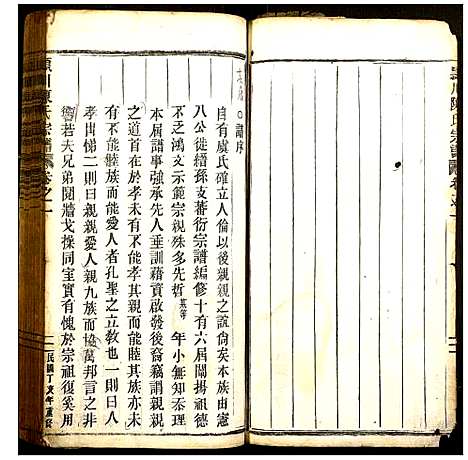 譜序
自有虞氏確立人倫以後親親之說尚矣本族由憲
八公徙縉孫支蕃衍宗譜編修十有六屆闡揚祖德
不乏鴻文示範宗親殊多先哲 蕙等 年小無知忝理
本屆譜事強承先人垂訓藉資啟發後裔竊謂親親
首在於孝未有不能孝父母而能和其族者其族亦未
有不能睦族而能愛人者孔聖之立教也一則曰人
孝出悌二則曰親親愛人親九族而協萬邦言之非
若夫兄弟鬩牆戈操同室實有愧於宗祖復奚用
潁川陳氏宗譜 卷之一
民國丁亥年重修
潁川陳氏宗譜 卷之一